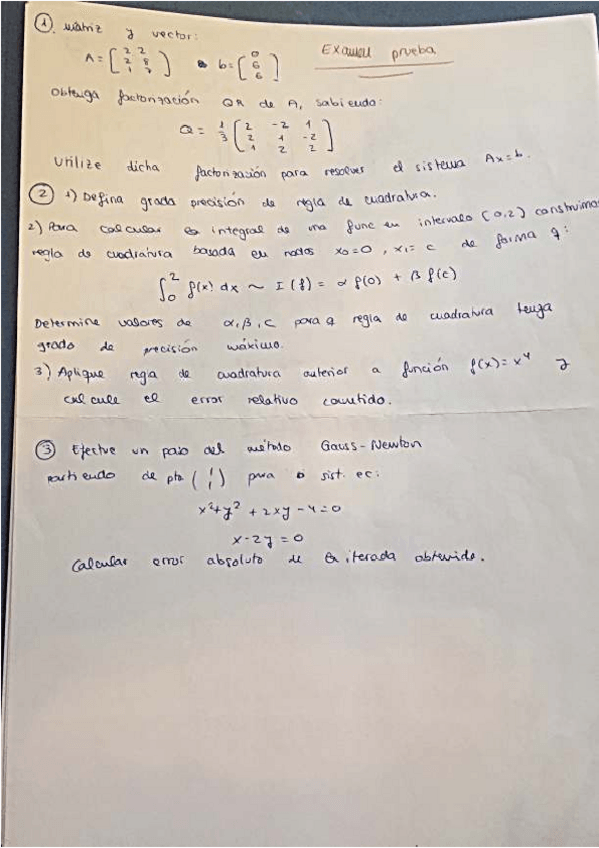 ① Matriz y vector:
Examen prueba
A = [2 2; 2 8; 1 7] b = [0; 6; 6]
Obtenga factorización QR de A, sabiendo:
Q = 1/3 [2 -2 1; 2 1 -2; 1 2 2]
Utilize dicha factorización para resolver el sistema Ax=b.
② 1) Defina grado precisión de regla de cuadratura.
2) Para calcular la integral de una func en intervalo (0,2) construimos
regla de cuadratura basada en nodos x₀=0, x₁=c de forma q:
∫₀² f(x) dx ~ I(f) = α f(0) + β f(c)
Determine valores de α, β, c para q regla de cuadratura tenga
grado de precisión máximo.
3) Aplique regla de cuadratura anterior a función f(x)=x⁴ y
calcule el error relativo cometido.
③ Efectue un paso del método Gauss-Newton
partiendo de pto (1; 1) para sist. ec:
x²+y²+2xy-4=0
x-2y=0
Calcular error absoluto de la iterada obtenida.